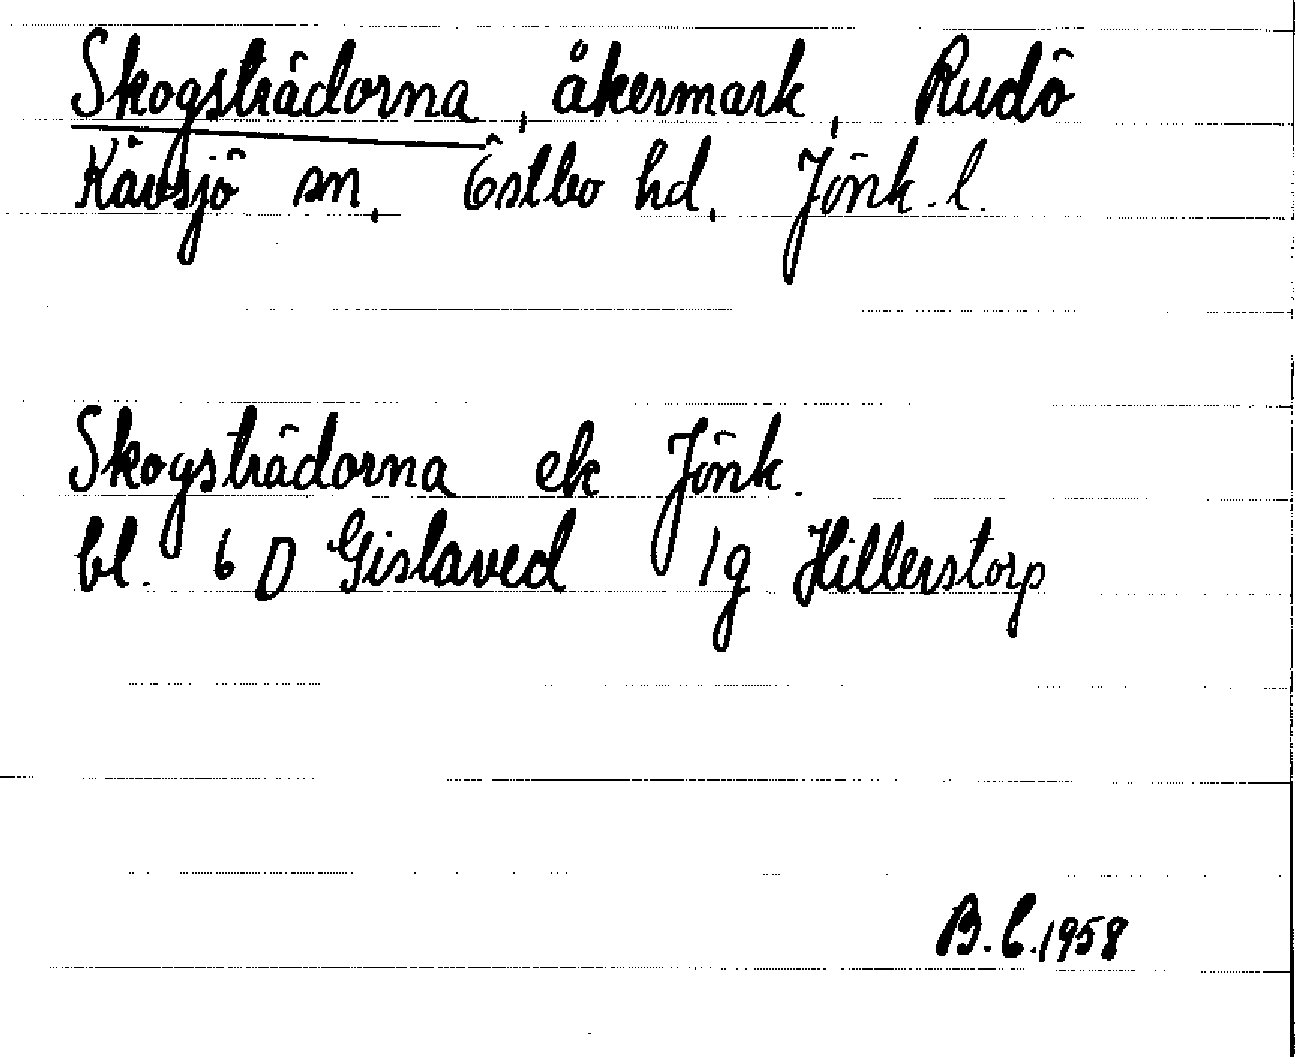 Skogsträdorna, åkermark, Rudö
Kävsjö sn, Östbo hd, Jönk. l.
Skogsträdorna ek Jönk.
bl. 6 D Gislaved 1g Hillerstorp
B.C. 1958